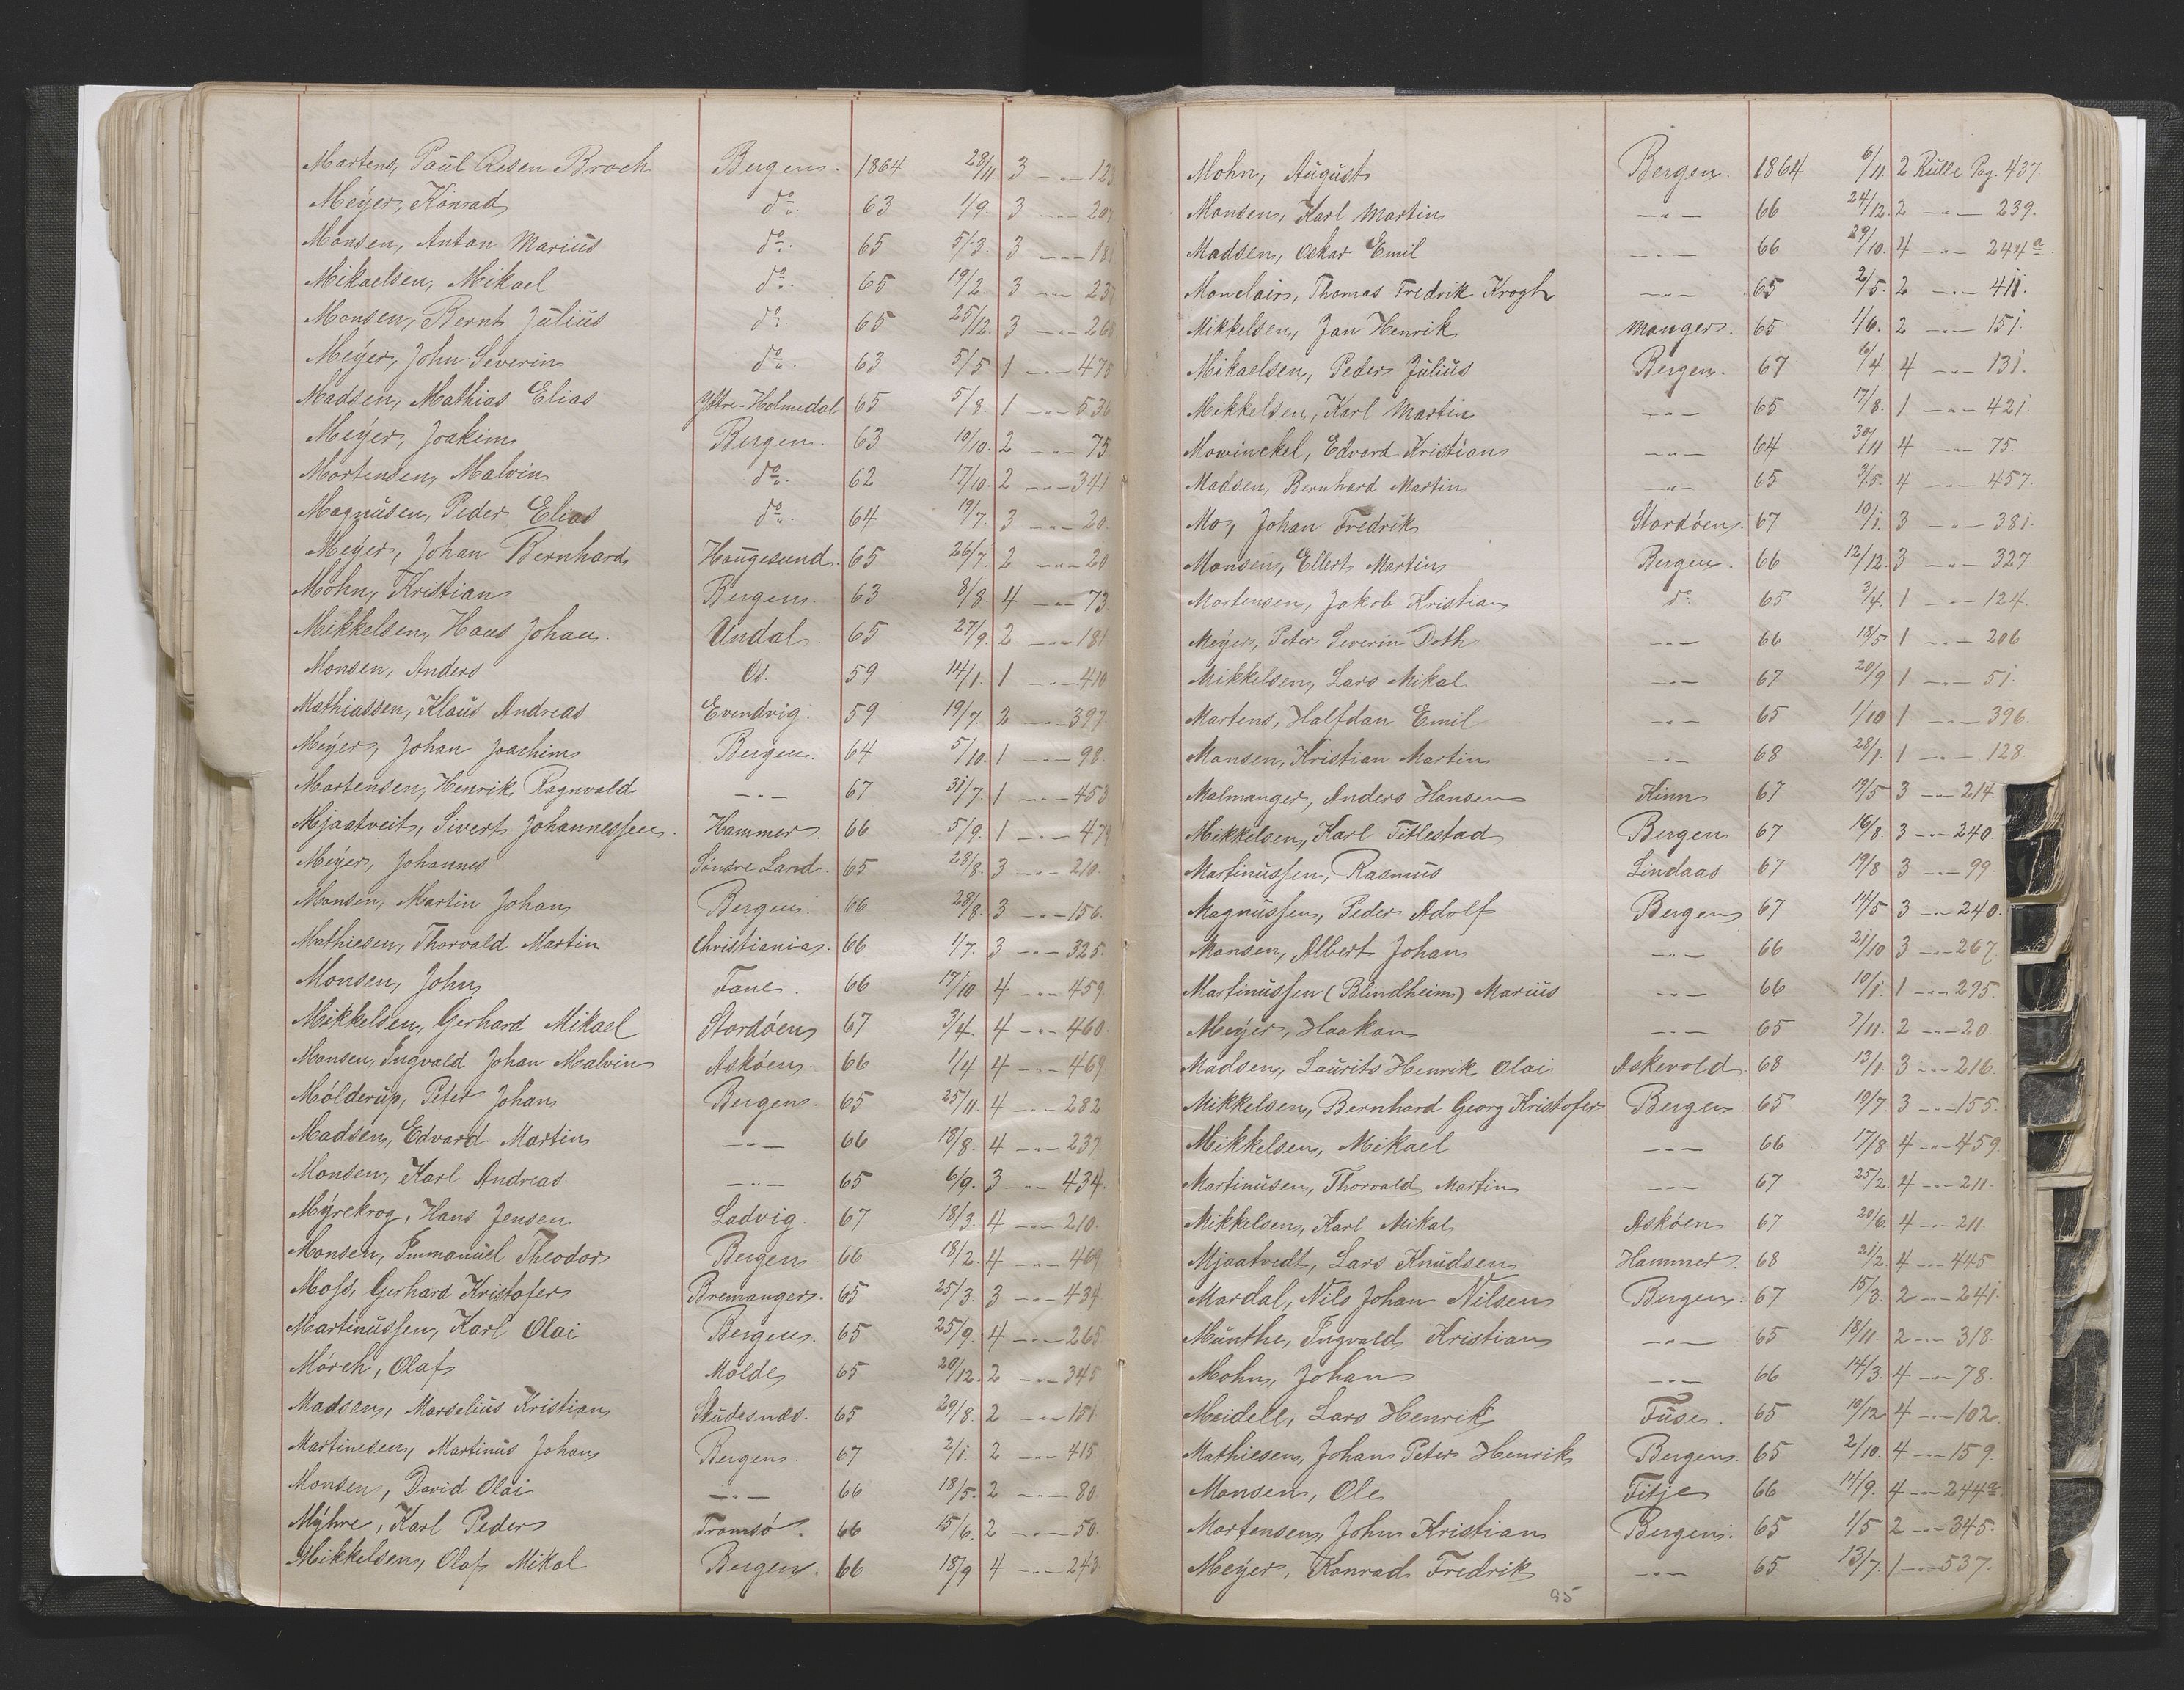 Martens, Paul Resen Broch Bergen. 1864 28/11 3 -„-
Meyer, Konrad do. 63 1/9. 3 -„-
Monsen, Anton Marius do. 65 5/3. 3 -„-
Mikaelsen, Mikael do. 65 19/2. 3 -„-
Monsen, Bernt Julius do. 65 25/12. 3 -„- 268
Meyer, John Severin do. 63 5/5 1 -„- 475
Madsen, Mathias Elias Yttre-Holmedal 65 5/8. 1 -„- 536
Meyer, Joakim Bergen. 63 10/10. 2 -„- 75.
Mortensen, Malvin do. 62 17/10. 2 -„- 341
Magnusen, Peder Elias do. 64 19/7. 3 -„- 20.
Meyer, Johan Bernhard Haugesund. 65 26/7. 2 -„- 20
Mohn, Kristian Bergen. 63 8/8. 4 -„- 73.
Mikkelsen, Hans Johan. Undal. 65 27/9. 2 -„- 181
Monsen, Anders Os. 59 14/1. 1 -„- 410
Mathiassen, Klaus Andreas Evendvig. 59 19/7. 2 -„- 397.
Meyer, Johan Joachim Bergen. 64 5/10. 1 -„- 98.
Mortensen, Henrik Ragnvald -„- 67 31/7. 1 -„- 453.
Mjaatveit, Sivert Johannessen. Hammer. 66 5/9. 1 -„- 479
Meyer, Johannes Søndre Land. 65 28/8. 3 -„- 210.
Monsen, Martin Johan Bergen. 66 28/8. 3 -„- 156.
Mathiesen, Thorvald Martin Christiania. 66 1/7. 3 -„- 325.
Monsen, John Fane. 66 17/10 4 -„- 459
Mikkelsen, Gerhard Mikael Stordöen 67 3/4. 4 -„- 460.
Monsen, Ingvald Johan Malvin Asköen. 66 1/4 4 -„- 469.
Mölderup, Peter Johan Bergen. 65 25/11. 4 -„- 282
Madsen, Edvard Martin -„- 66 18/8. 4 -„- 237.
Monsen, Karl Andreas -„- 65 6/9. 3 -„- 434.
Myrekrog, Hans Jensen Ladvig. 67 18/3. 4 -„- 210.
Monsen, Immanuel Theodor Bergen. 66 18/2. 4 -„- 469.
Moss, Gerhard Kristofer Bremanger. 65 25/3. 3 -„- 434
Martinussen, Karl Olai Bergen. 65 25/9. 4 -„- 265.
Mörch, Olaf Molde 65 20/12. 2 -„- 345
Madsen, Marselius Kristian Skudesnæs. 65 29/8. 2 -„- 151
Martinesen, Martinus Johan Bergen. 67 2/1. 2 -„- 415.
Monsen, David Olai -„- 66 18/5. 2 -„- 80.
Myhre, Karl Peder Tromsö. 66 15/6. 2 -„- 50.
Mikkelsen, Olaf Mikal Bergen. 66 18/9 4 -„- 243.
Mohn, August Bergen. 1864 6/11. 2 Rulle Pag. 437.
Monsen, Karl Martin -„- 66 24/12. 2 -„- 239.
Madsen, Oskar Emil -„- 66 29/10. 4 -„- 244a.
Monclair, Thomas Fredrik Krogh -„- 65 2/5. 2 -„- 411.
Mikkelsen, Jan Henrik Manger. 65 1/6. 2 -„- 151.
Mikaelsen, Peder Julius Bergen. 67 6/4. 4 -„- 131.
Mikkelsen, Karl Martin -„- 65 17/8. 1 -„- 421.
Mowinckel, Edvard Kristian -„- 64 30/11 4 -„- 75.
Madsen, Bernhard Martin -„- 65 3/5. 4 -„- 457.
Mo, Johan Fredrik Stordöen. 67 10/1. 3 -„- 381.
Monsen, Ellert Martin Bergen. 66 12/12. 3 -„- 327.
Mortensen, Jakob Kristian do 65 3/4. 1 -„- 124.
Meyer, Peter Severin Doth -„- 66 18/5 1 -„- 206
Mikkelsen, Lars Mikal -„- 67 20/9. 1 -„- 51.
Martens, Halfdan Emil -„- 65 1/10 1 -„- 396.
Monsen, Kristian Martin -„- 68 28/1. 1 -„- 128.
Malmanger, Anders Hansen Kinn 67 19/5 3 -„- 214.
Mikkelsen, Karl Titlestad Bergen 67 16/8. 3 -„- 240.
Martinussen, Rasmus Lindaas 67 19/8 3 -„- 99.
Magnussen, Peder Adolf Bergen 67 14/5 3 -„- 240.
Monsen, Albert Johan -„- 66 21/10 3 -„- 267.
Martinussen (Blindheim) Marius -„- 66 10/1. 1 -„- 295.
Meyer, Haakon -„- 65 7/11. 2 -„- 20.
Madsen, Laurits Henrik Olai Askevold. 68 13/1. 3 -„- 216.
Mikkelsen, Bernhard Georg Kristofer Bergen. 65 19/7. 3 -„- 155.
Mikkelsen, Mikael -„- 66 17/8. 4 -„- 459.
Martinusen, Thorvald Martin -„- 67 25/2. 4 -„- 211.
Mikkelsen, Karl Mikal Asköen 67 20/6. 4 -„- 211.
Mjaatvedt, Lars Knudsen Hammer. 68 21/2. 4 -„- 445.
Mardal, Nils Johan Nilsen Bergen. 67 15/3. 2 -„- 241.
Munthe, Ingvald Kristian -„- 65 18/11. 2 -„- 318.
Mohn, Johan -„- 66 14/3. 4 -„- 78.
Meidell, Lars Henrik Fuse. 65 10/12 4 -„- 102.
Mathiesen, Johan Peter Henrik Bergen. 65 2/10. 4 -„- 159.
Monsen, Ole Fitje 66 14/9. 4 -„- 244a.
Mortensen, John Kristian Bergen. 65 1/5 2 -„- 345.
Meyer, Konrad Fredrik -„- 65 13/7. 1 -„- 537.
95